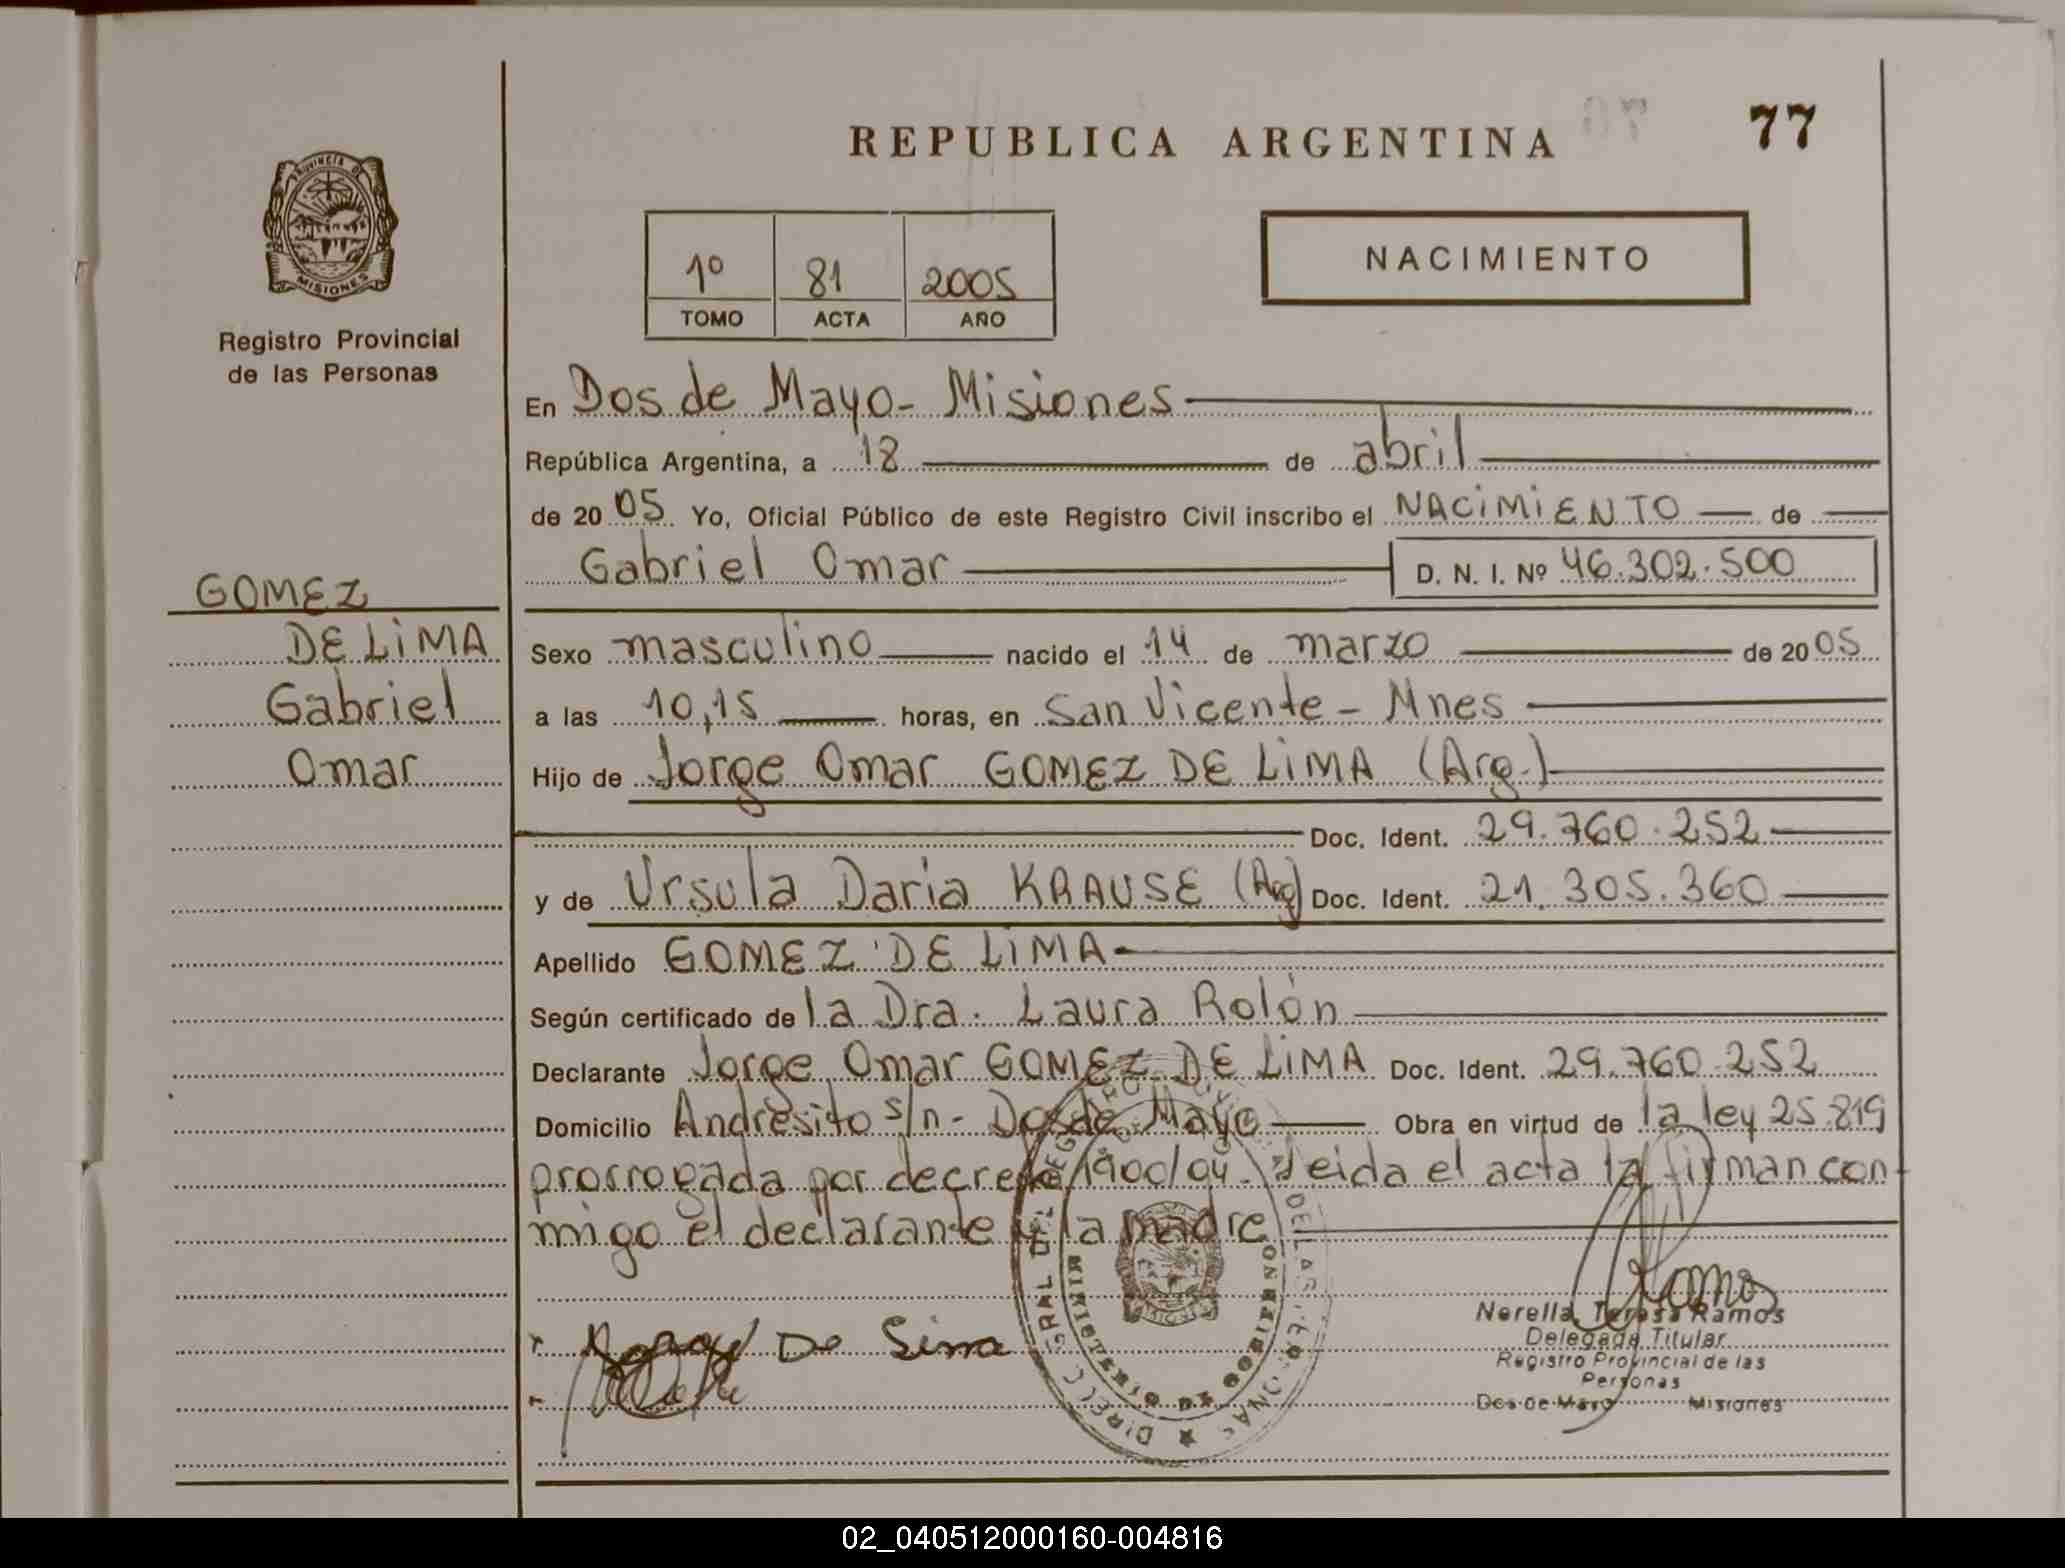 77
REPUBLICA ARGENTINA
PROVINCIA DE
MISIONES
Registro Provincial
de las Personas
1º 81 2005
TOMO ACTA AÑO
NACIMIENTO
En Dos de Mayo - Misiones
República Argentina, a 18 de abril
de 2005 Yo, Oficial Público de este Registro Civil inscribo el NACIMIENTO de
Gabriel Omar D. N. I. Nº 46.302.500
GOMEZ
DE LIMA
Gabriel
Omar
Sexo masculino nacido el 14 de marzo de 2005
a las 10,15 horas, en San Vicente - Mnes
Hijo de Jorge Omar GOMEZ DE LIMA (Arg.)
Doc. Ident. 29.760.252
y de Ursula Daria KRAUSE (Arg) Doc. Ident. 21.305.360
Apellido GOMEZ DE LIMA
Según certificado de la Dra. Laura Rolón
Declarante Jorge Omar GOMEZ DE LIMA Doc. Ident. 29.760.252
Domicilio Andresito s/n - Dos de Mayo Obra en virtud de la ley 25.819
prorrogada por decreto 1900/04. Leida el acta la firman con
migo el declarante y la madre
De Lima
Ramos
Nerella Teresa Ramos
Delegada Titular
Registro Provincial de las
Personas
Dos de Mayo Misiones
MINISTERIO DE GOBIERNO
02_040512000160-004816